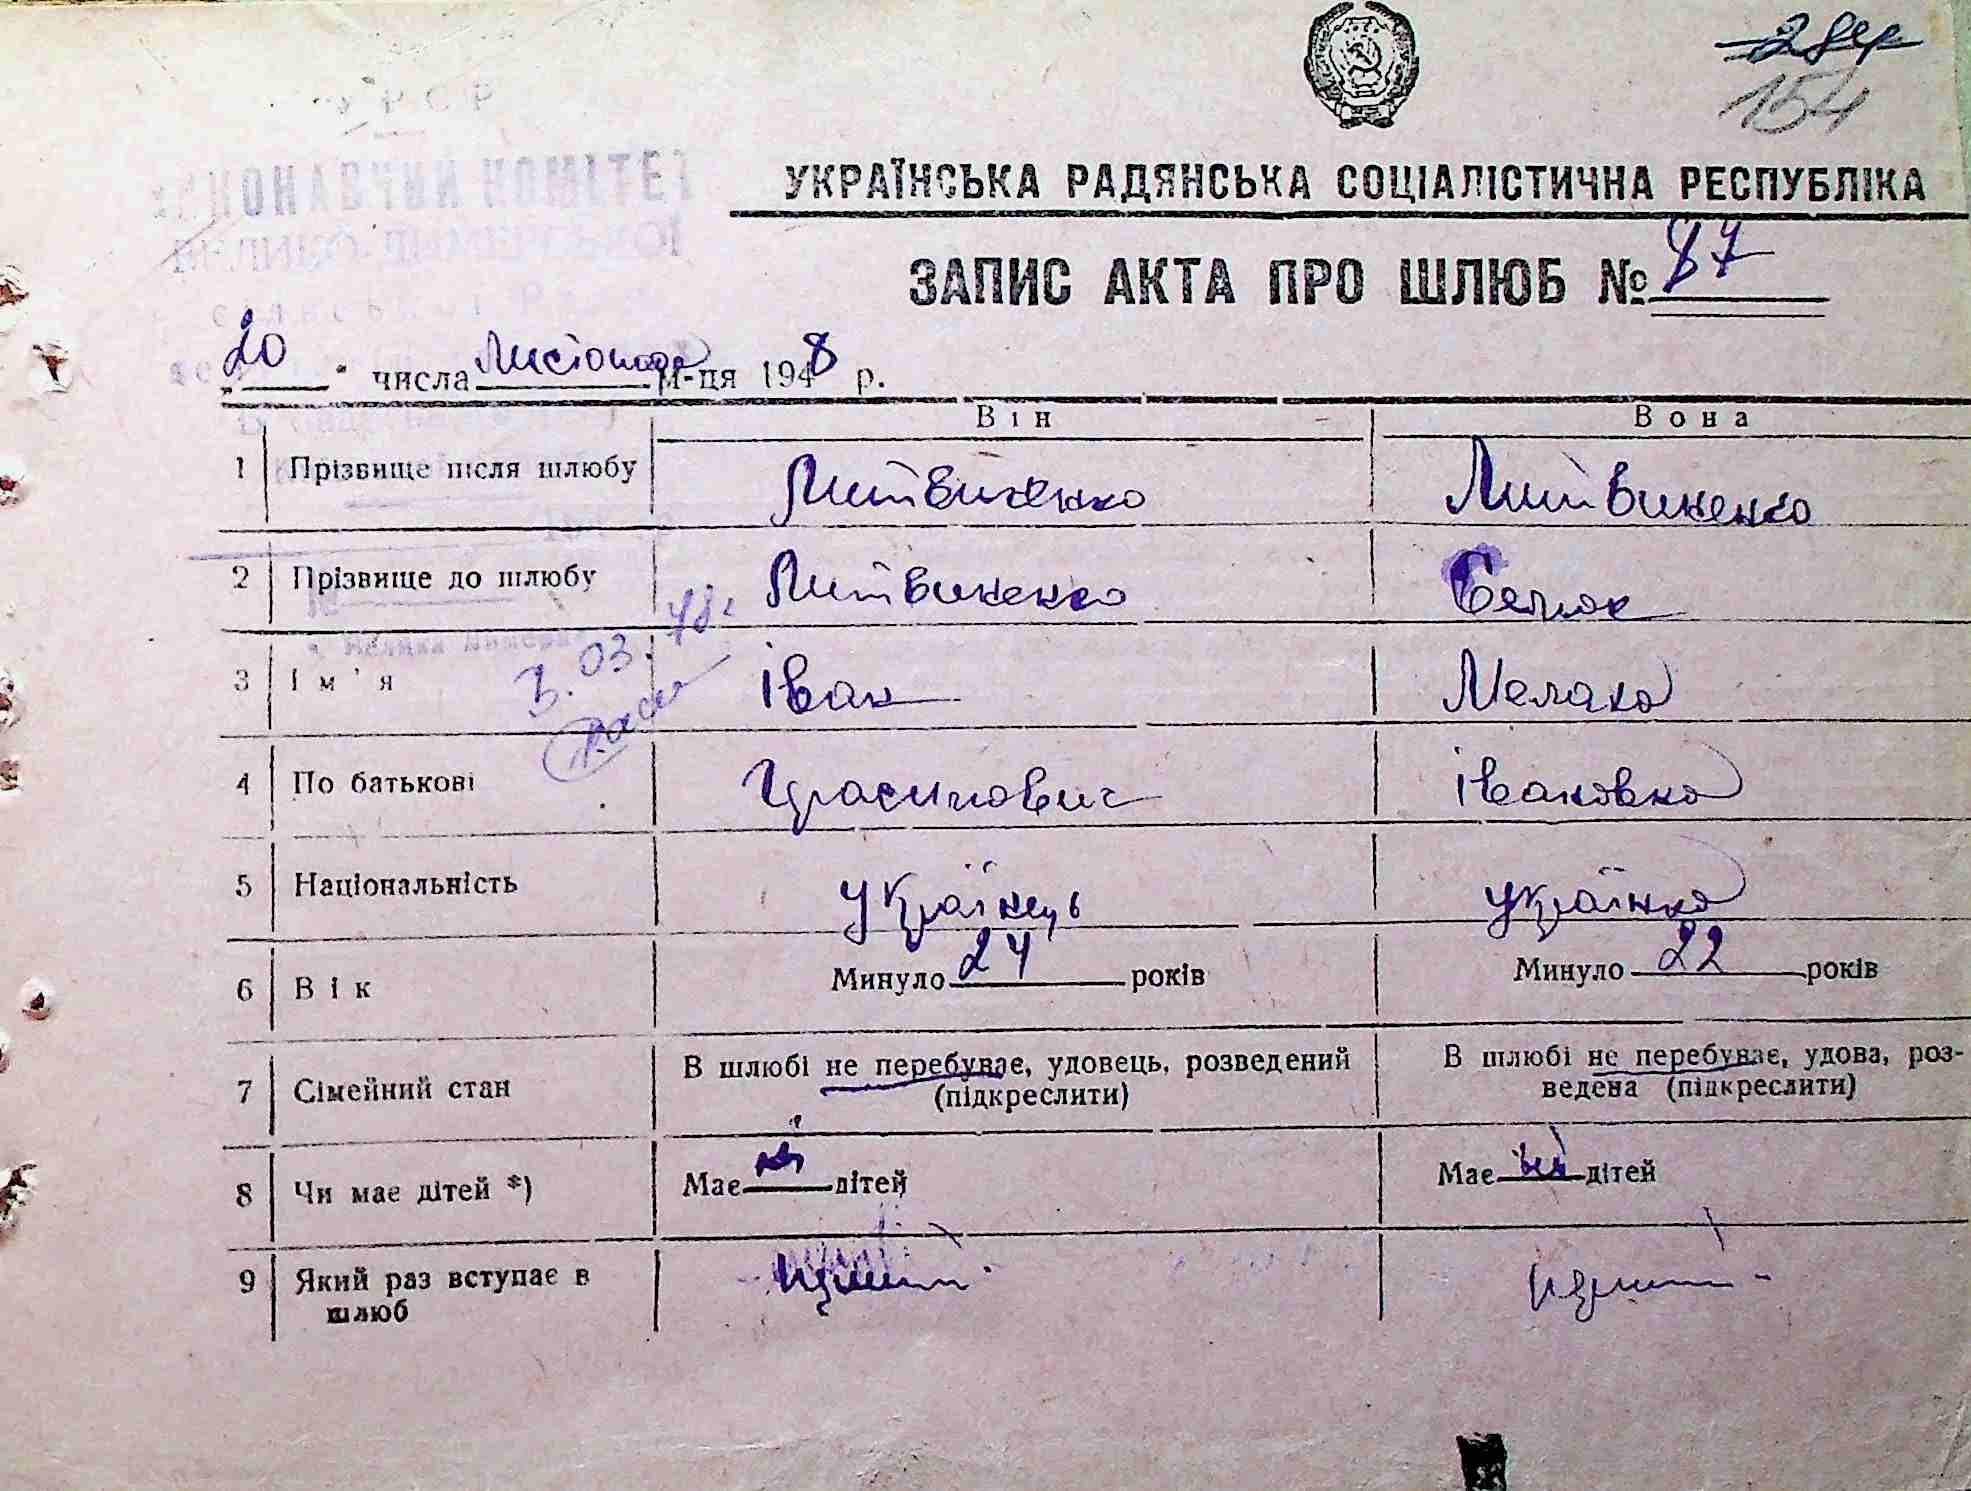 154
УРСР
ВИКОНАВЧИЙ КОМІТЕТ
ВЕЛИКО-ДИМЕРСЬКОЇ
УКРАЇНСЬКА РАДЯНСЬКА СОЦІАЛІСТИЧНА РЕСПУБЛІКА
ЗАПИС АКТА ПРО ШЛЮБ № 87
„20" числа Листопада м-ця 1948 р.
Він Вона
1 Прізвище після шлюбу Литвиненко Литвиненко
2 Прізвище до шлюбу Литвиненко
3 Ім'я Іван Меланка
3.03.48г
4 По батькові Герасимович Івановна
5 Національність Українець українка
6 Вік Минуло 24 років Минуло 22 років
7 Сімейний стан В шлюбі не перебуває, удовець, розведений (підкреслити) В шлюбі не перебуває, удова, роз-
ведена (підкреслити)
8 Чи має дітей *) Має дітей Має дітей
9 Який раз вступає в
шлюб